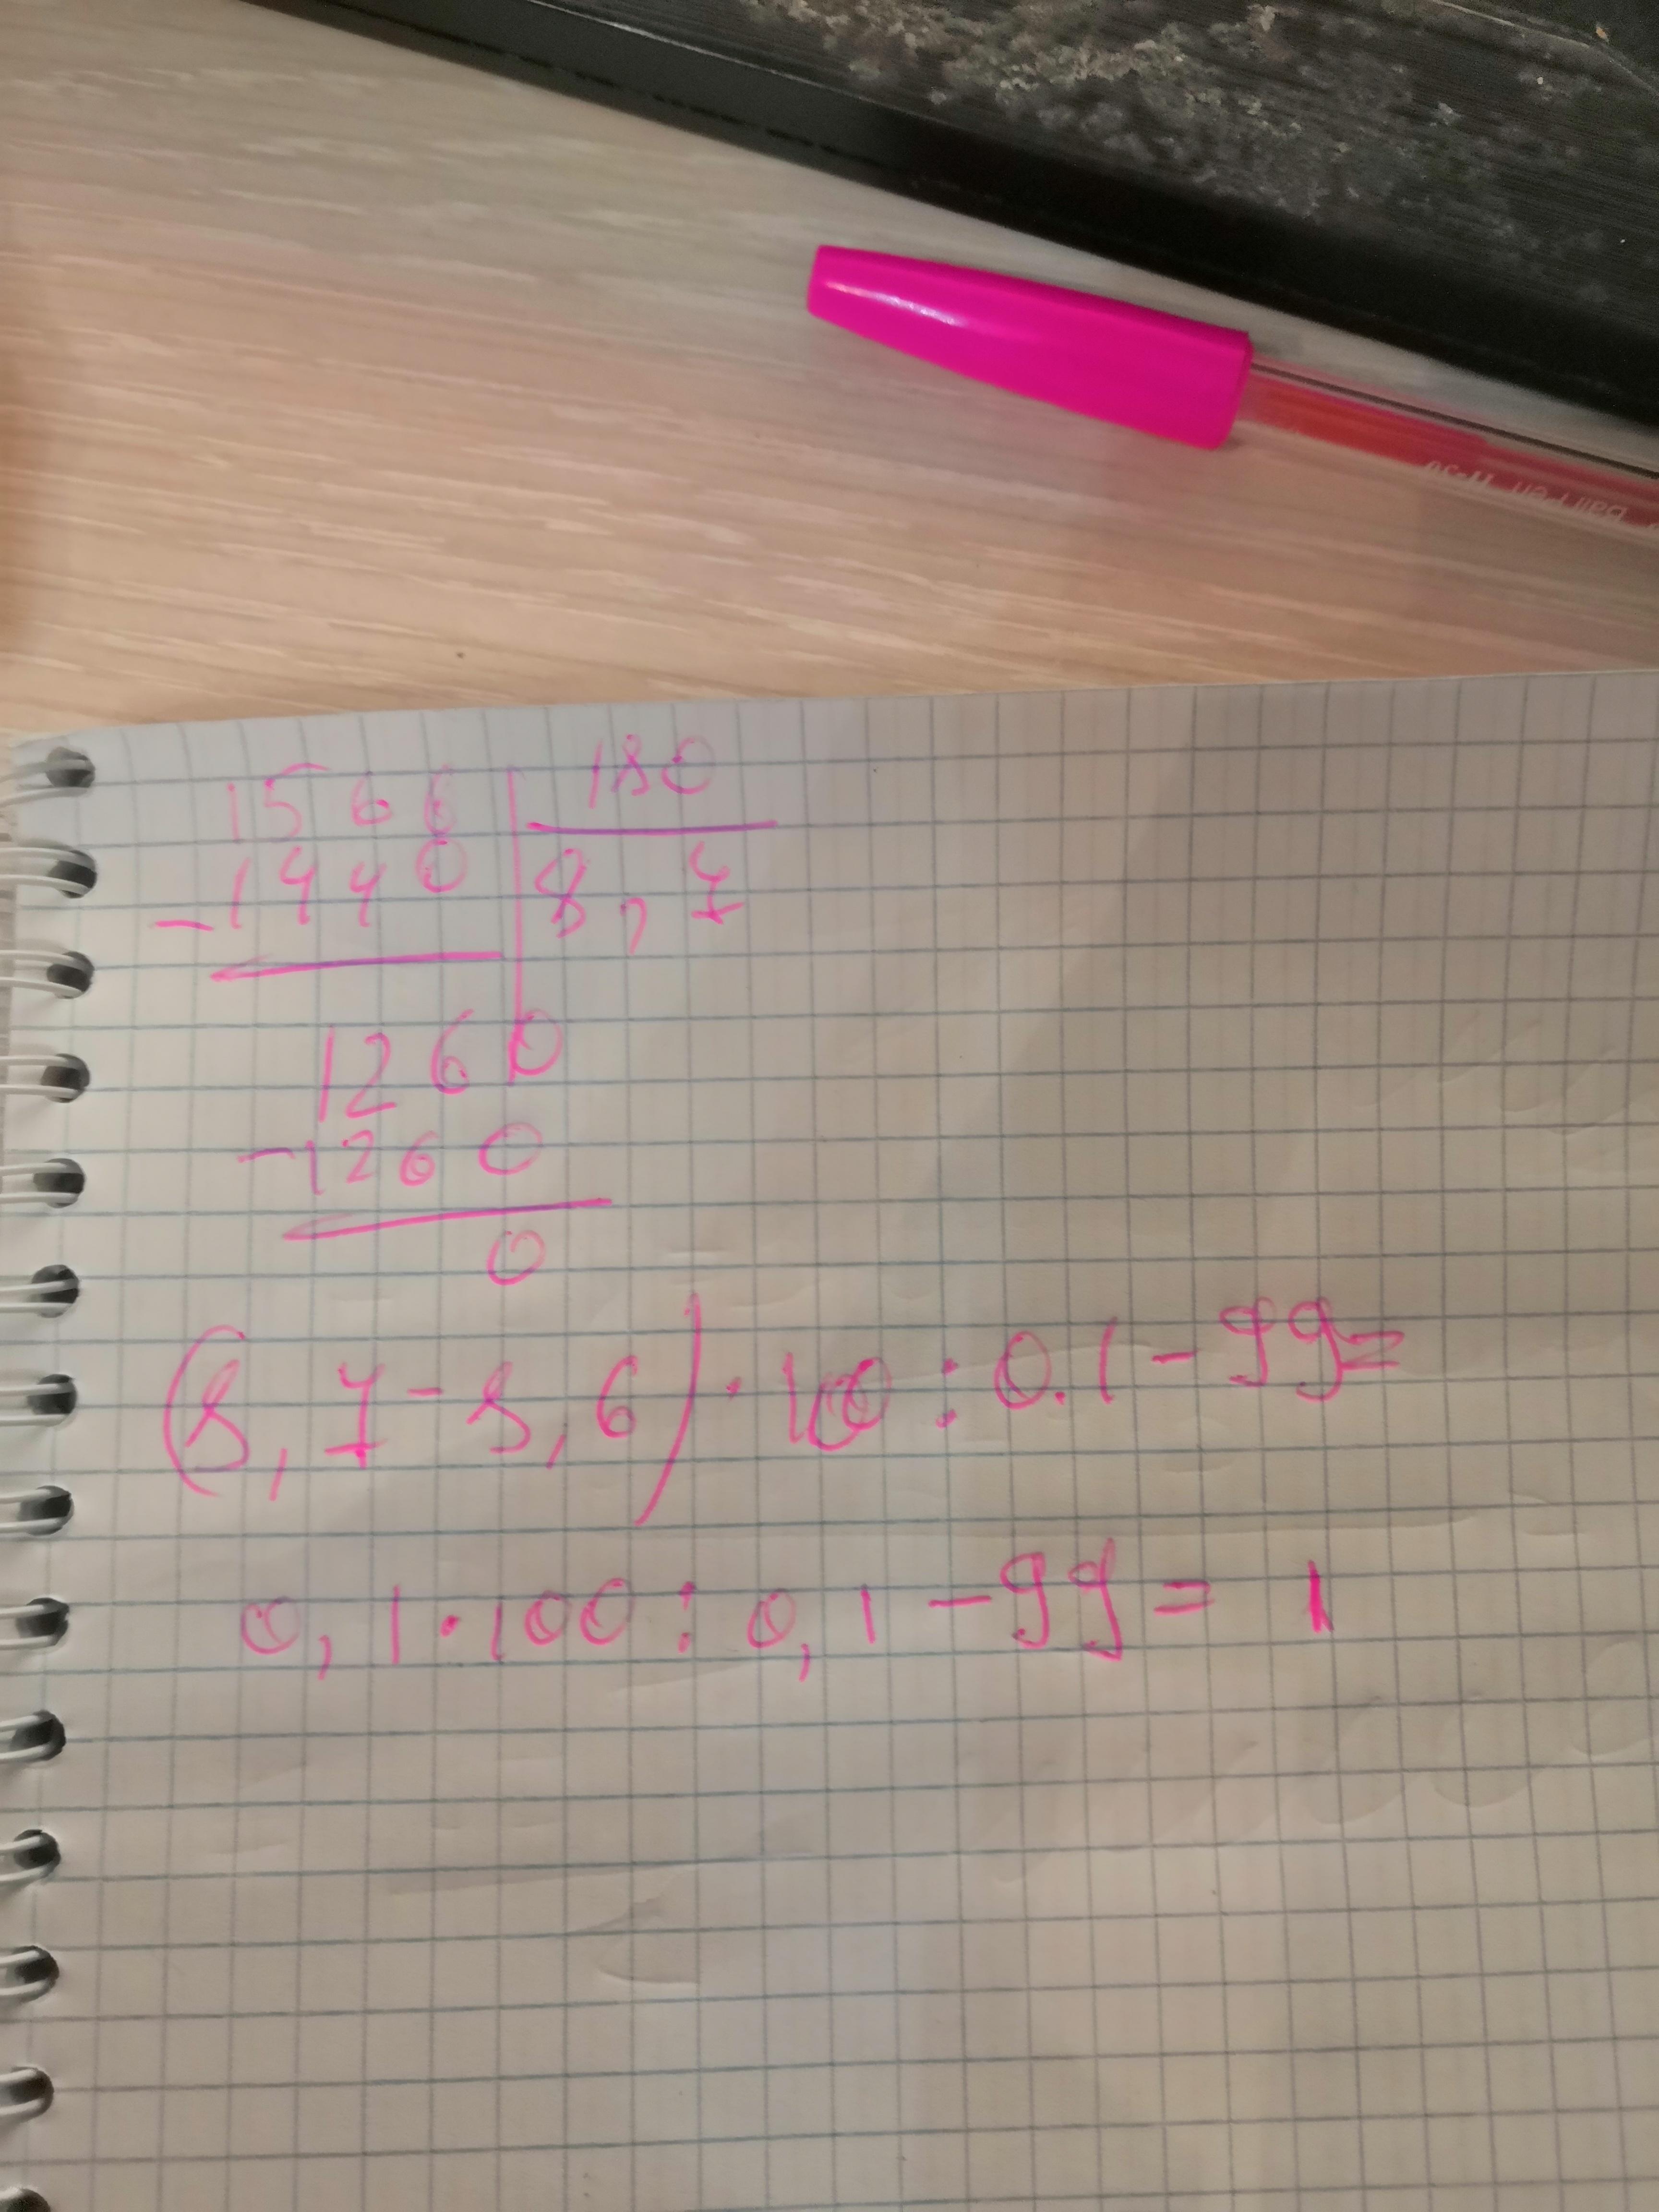 Ball Pen H-30
1566 180
-1440 8,7
1260
-1260
0
(8,7-8,6)·100:0.1-99=
0,1·100:0,1-99=1